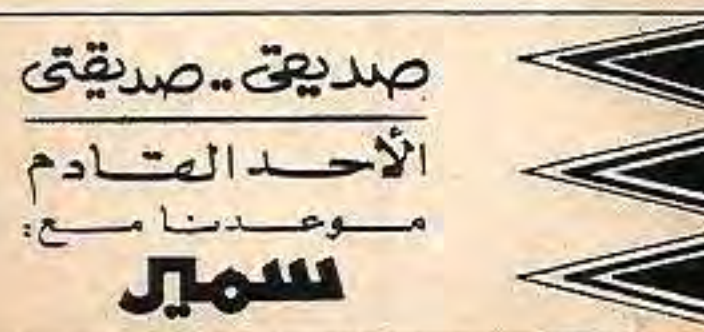 صديقى .. صديقتى
الأحد القادم
موعدنا مع:
سمير